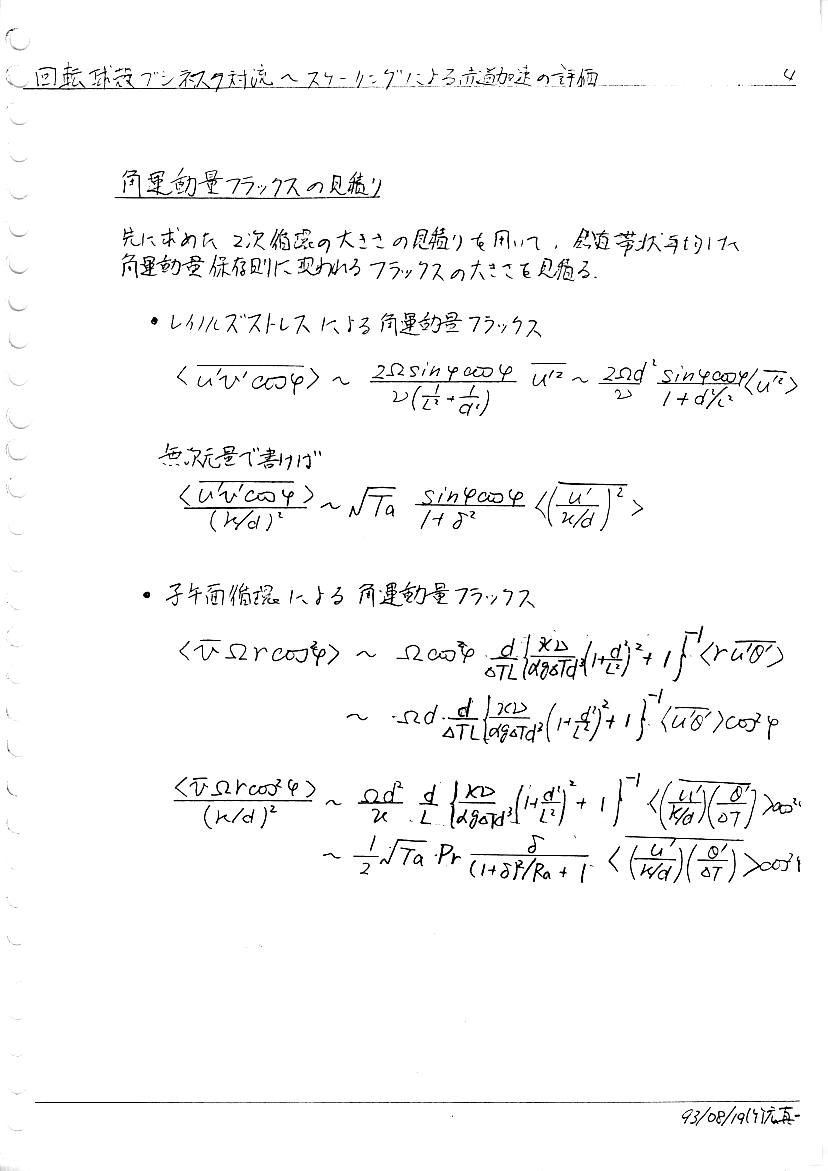 回転球殻ブシネスク対流 〜 スケーリングによる赤道加速の評価 4
角運動量フラックスの見積り
先に求めた 2次循環の大きさの見積りを用いて, 鉛直帯状平均した
角運動量保存則に現われるフラックスの大きさを見積る.
• レイノルズストレス による 角運動量フラックス
< \overline{u'v'cosφ} > ~ \frac{2Ωsinφcosφ}{ν(\frac{1}{L²}+\frac{1}{d²})} \overline{u'²} ~ \frac{2Ωd²}{ν} \frac{sinφcosφ}{1+d²/L²} <\overline{u'²}>
無次元量で書けば
\frac{<\overline{u'v'cosφ}>}{(κ/d)²} ~ \sqrt{Ta} \frac{sinφcosφ}{1+δ²} <\overline{(\frac{u'}{κ/d})²}>
• 子午面循環 による 角運動量フラックス
<\overline{v}Ωrcos²φ> ~ Ωcos²φ \frac{d}{ΔTL} {\frac{κν}{αgΔTd³}(1+\frac{d²}{L²})²+1}^{-1} <r\overline{u'θ'}>
~ Ωd·\frac{d}{ΔTL} {\frac{κν}{αgΔTd³}(1+\frac{d²}{L²})²+1}^{-1} <\overline{u'θ'}>cos²φ
\frac{<\overline{v}Ωrcos²φ>}{(κ/d)²} ~ \frac{Ωd²}{κ} \frac{d}{L} {\frac{κν}{αgΔTd³}(1+\frac{d²}{L²})²+1}^{-1} <\overline{(\frac{u'}{κ/d})(\frac{θ'}{ΔT})}>cos²
~ \frac{1}{2}\sqrt{Ta}·Pr \frac{δ}{(1+δ²)²/Ra+1} <\overline{(\frac{u'}{κ/d})(\frac{θ'}{ΔT})}>cos²φ
93/08/19